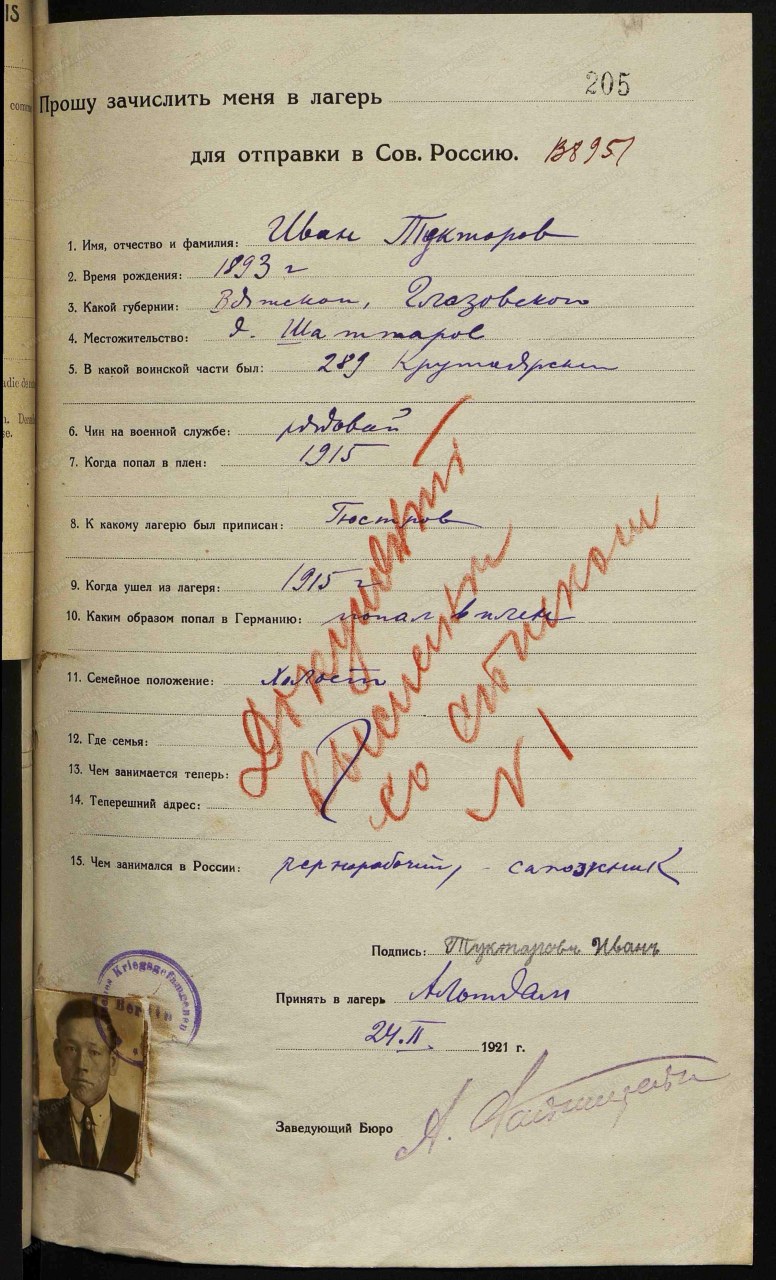 205
Прошу зачислить меня в лагерь
для отправки в Сов. Россию. В8951
1. Имя, отчество и фамилия: Иван Туктаров
2. Время рождения: 1893 г
3. Какой губернии: Вятской, Глазовского
4. Местожительство: д. Шаттаров
5. В какой воинской части был: 289 Крутоярский
6. Чин на военной службе: рядовой
7. Когда попал в плен: 1915
8. К какому лагерю был приписан: Гюстров
9. Когда ушел из лагеря: 1915 г
10. Каким образом попал в Германию: попал в плен
11. Семейное положение: холост
12. Где семья:
13. Чем занимается теперь:
14. Теперешний адрес:
15. Чем занимался в России: чернорабочий, - сапожник
Документ
выслан
со списком
N 1
Подпись: Туктаровъ Иванъ
Принять в лагерь Альтдам
24.II. 1921 г.
Заведующий Бюро А.
Kriegsgefangenen
Berlin